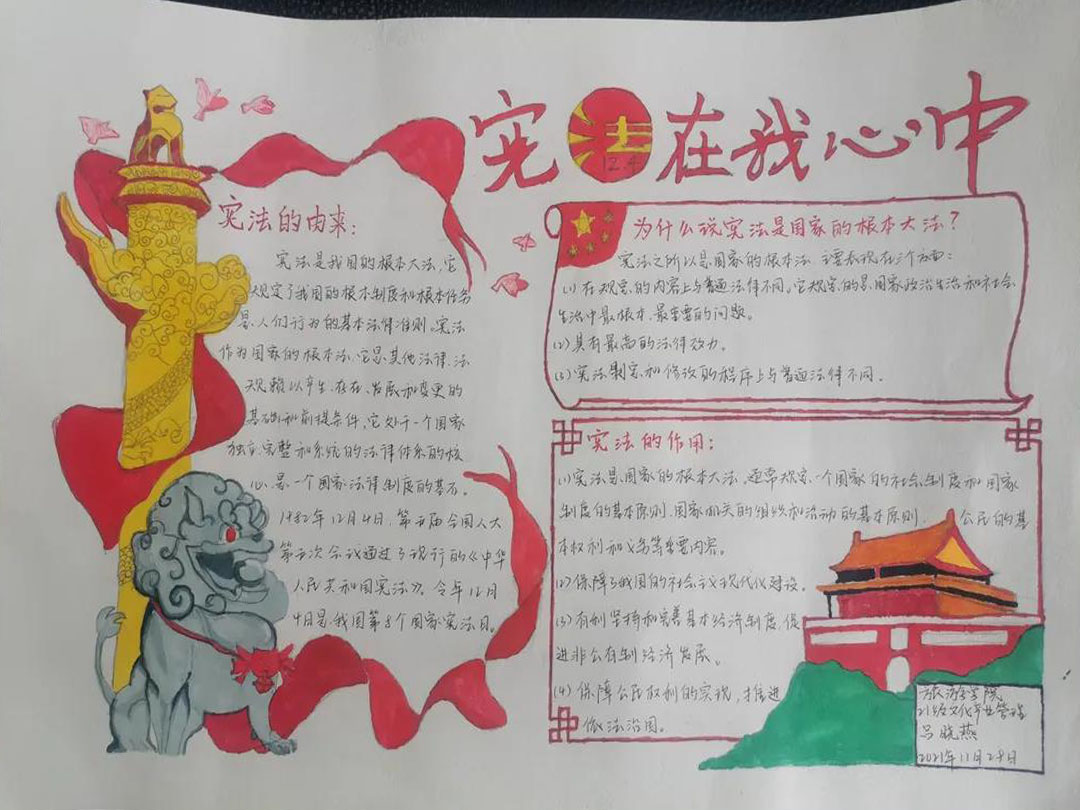 宪法在我心中
12.4
宪法的由来:
宪法是我国的根本大法,它
规定了我国的根本制度和根本任务
是人们行为的基本法律准则。宪法
作为国家的根本法,它是其他法律、法
规赖以产生、存在、发展和变更的
基础和前提条件,它处于一个国家
独立、完整和系统的法律体系的核
心,是一个国家法律制度的基石。
1982年12月4日,第五届全国人大
第五次会议通过了现行的《中华
人民共和国宪法》。今年12月
4日是我国第8个国家宪法日。
为什么说宪法是国家的根本大法?
宪法之所以是国家的根本法,主要表现在三个方面:
(1)在规定的内容上与普通法律不同。它规定的是国家政治生活和社会
生活中最根本、最重要的问题。
(2)具有最高的法律效力。
(3)宪法制定和修改的程序上与普通法律不同。
宪法的作用:
(1)宪法是国家的根本大法,通常规定一个国家的社会制度和国家
制度的基本原则、国家机关的组织和活动的基本原则, 公民的基
本权利和义务等重要内容。
(2)保障了我国的社会主义现代化建设。
(3)有利坚持和完善基本经济制度,促
进非公有制经济发展。
(4)保障公民权利的实现,推进
依法治国。
旅游学院
21级文化产业管理
吕晓燕
2021年11月29日